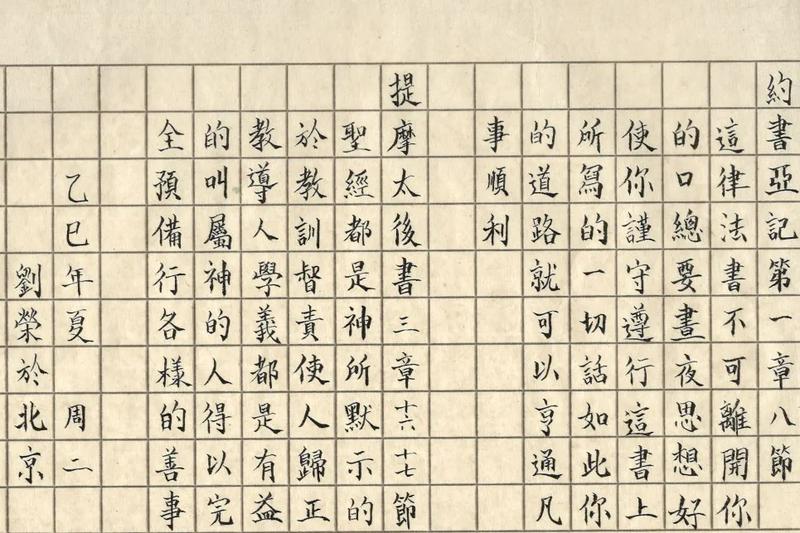 約書亞記第一章八節
這律法書不可離開你
的口總要晝夜思想好
使你謹守遵行這書上
所寫的一切話如此你
的道路就可以亨通凡
事順利
提摩太後書三章十六十七節
聖經都是神所默示的
於教訓督責使人歸正
教導人學義都是有益
的叫屬神的人得以完
全預備行各樣的善事
乙巳年夏 周二
劉榮於北京